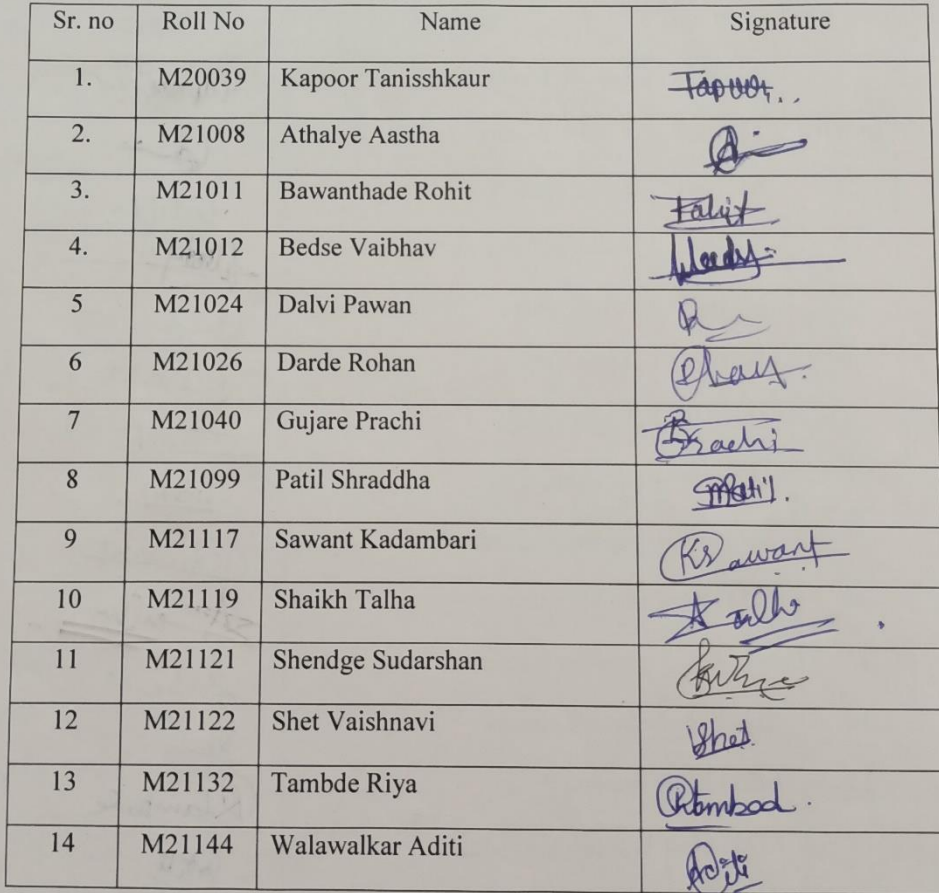 Sr. no Roll No Name Signature
1. M20039 Kapoor Tanisshkaur
2. M21008 Athalye Aastha
3. M21011 Bawanthade Rohit
4. M21012 Bedse Vaibhav
5 M21024 Dalvi Pawan
6 M21026 Darde Rohan
7 M21040 Gujare Prachi Prachi
8 M21099 Patil Shraddha
9 M21117 Sawant Kadambari KSawant
10 M21119 Shaikh Talha Talha
11 M21121 Shendge Sudarshan
12 M21122 Shet Vaishnavi Shet
13 M21132 Tambde Riya
14 M21144 Walawalkar Aditi Aditi